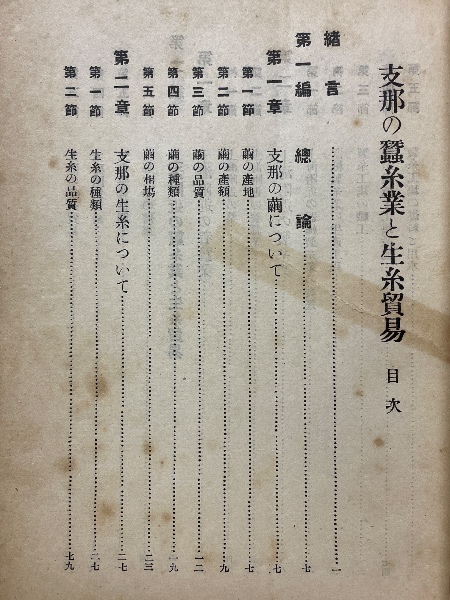 支那の蠶糸業と生糸貿易 目次
緒言……一
第一編 總論……七
第一章 支那の繭について……七
第一節 繭の產地……七
第二節 繭の產額……九
第三節 繭の品質……一二
第四節 繭の種類……一九
第五節 繭の相塲……二三
第二章 支那の生糸について……二七
第一節 生糸の種類……二七
第二節 生糸の品質……七九